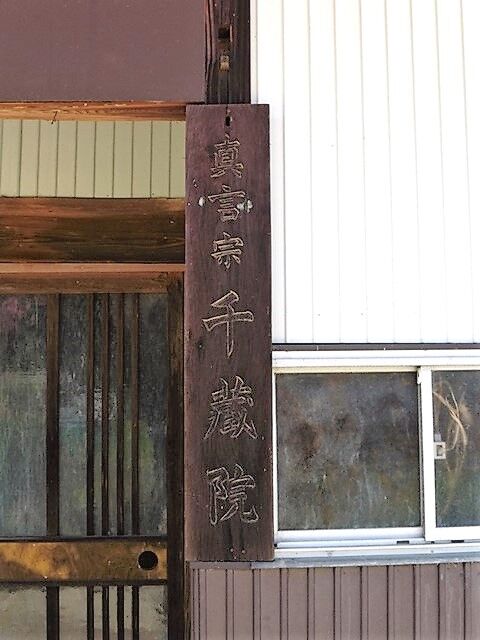 真言宗千蔵院